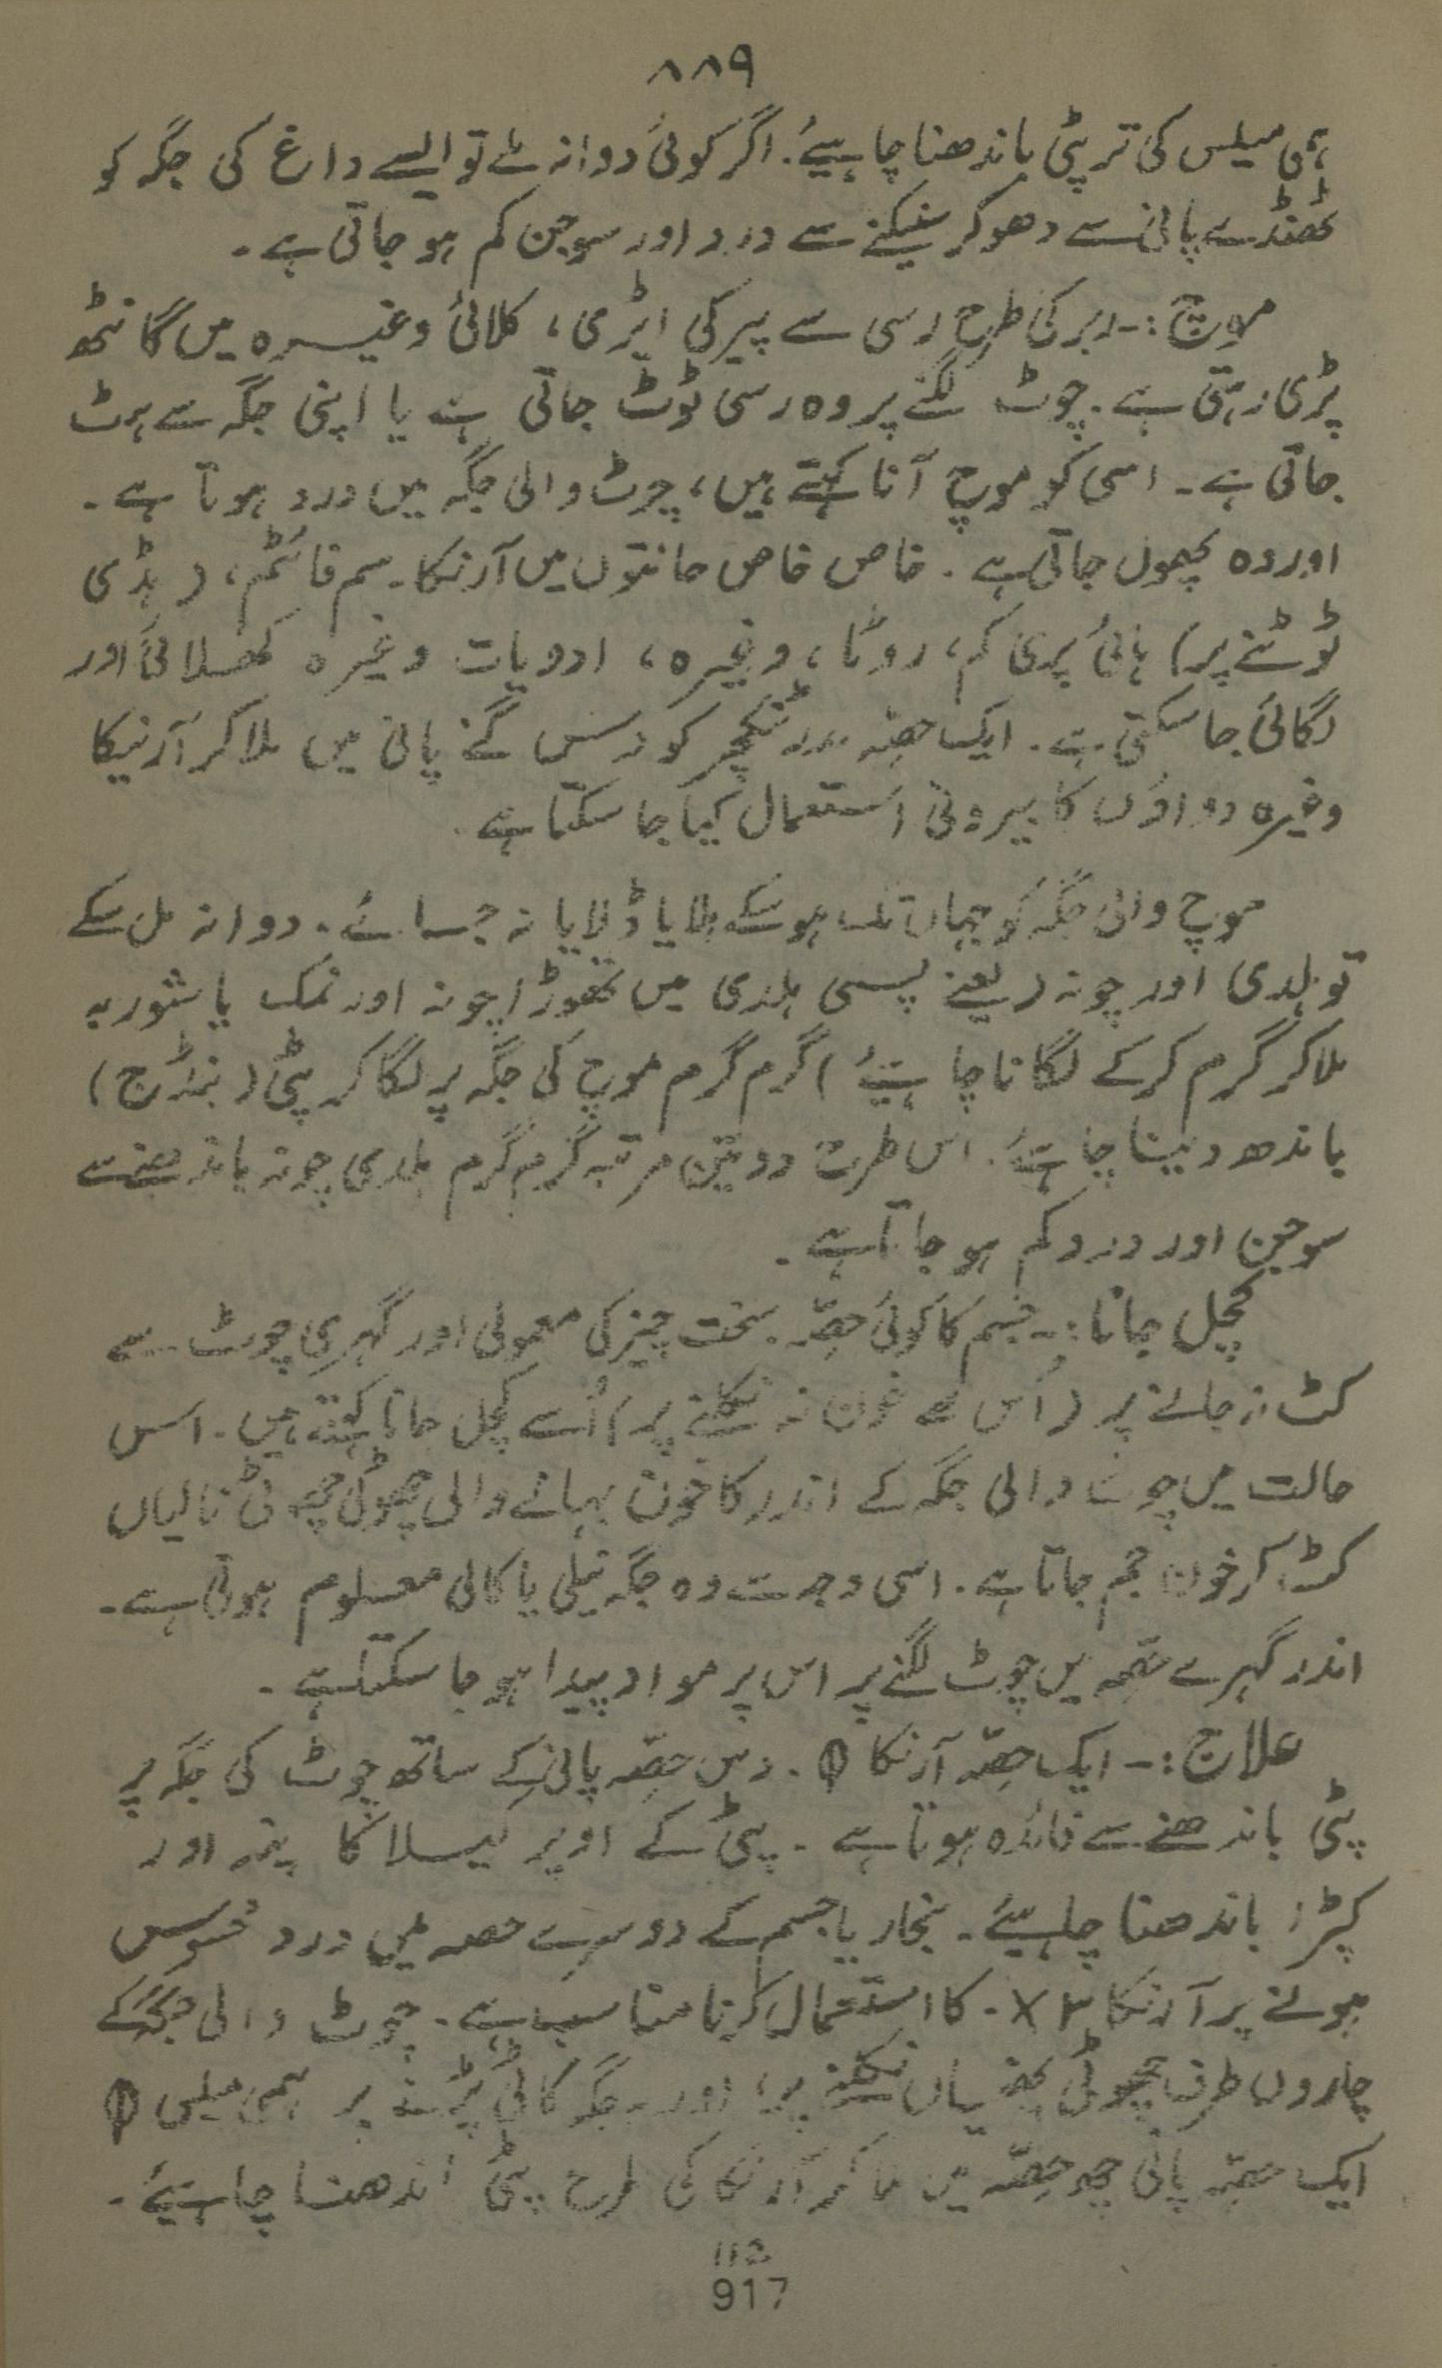 ۸۸۹
ہمی میلس کی تر پٹی باندھنا چاہیئے۔ اگر کوئی دوا نہ ملے تو ایسے داغ کی جگہ کو
ٹھنڈے پانی سے دھو کر سینکنے سے درد اور سوجن کم ہو جاتی ہے۔
موچ :- ربر کی طرح رسی سے پیر کی ایڑی، کلائی وغیرہ میں گانٹھ
پڑی رہتی ہے۔ چوٹ لگنے پر وہ رسی ٹوٹ جاتی ہے یا اپنی جگہ سے ہٹ
جاتی ہے۔ اسی کو موچ آنا کہتے ہیں، چوٹ والی جگہ میں درد ہوتا ہے۔
اور وہ پھول جاتی ہے۔ خاص خاص حالتوں میں آرنکا۔ سم فائٹم، (ہڈی
ٹوٹنے پر) ہائی پری کم، روٹا، وغیرہ، ادویات وغیرہ کھلائی اور
لگائی جا سکتی ہے۔ ایک حصّہ مدر ٹنکچر کو دس گنے پانی میں ملا کر آرنیکا
وغیرہ دواؤں کا بیرونی استعمال کیا جا سکتا ہے۔
موچ والی جگہ کو جہاں تک ہو سکے ہلایا ڈلایا نہ جائے۔ دوا نہ مل سکے
تو ہلدی اور چونہ (یعنے پسی ہلدی میں تھوڑا چونہ اور نمک یا شورہ
ملا کر گرم کر کے لگانا چاہیئے) گرم گرم موچ کی جگہ پر لگا کر پٹی (بنڈج)
باندھ دینا چاہئے۔ اس طرح دو تین مرتبہ گرم گرم ہلدی چونہ باندھنے سے
سوجن اور درد کم ہو جاتا ہے۔
کچل جانا :- جسم کا کوئی حصّہ سخت چیز کی معمولی اور گہری چوٹ سے
کٹ نہ جانے پر (اُس سے خون نہ نکلنے پر) اُسے کچل جانا کہتے ہیں۔ اس
حالت میں چوٹ والی جگہ کے اندر کا خون بہانے والی چھوٹی چھوٹی نالیاں
کٹ کر خون جم جاتا ہے۔ اسی وجہ سے وہ جگہ نیلی یا کالی معلوم ہوتی ہے۔
اندر گہرے حصّہ میں چوٹ لگنے پر اس پر مواد پیدا ہو جا سکتا ہے۔
علاج :- ایک حصّہ آرنکا θ۔ دس حصّہ پانی کے ساتھ چوٹ کی جگہ پر
پٹی باندھنے سے فائدہ ہوتا ہے۔ پٹی کے اوپر کیلا کا پتہ اور
کپڑا باندھنا چاہیئے۔ بخار یا جسم کے دوسرے حصہ میں درد محسوس
ہونے پر آرنکا ۳x۔ کا استعمال کرنا مناسب ہے۔ چوٹ والی جگہ کے
چاروں طرف چھوٹی پھنسیاں نکلنے پر، اور جگہ کالی پڑنے پر ہمی میلس θ
ایک حصّہ پانی چھ حصّہ میں ملا کر آرنکا کی طرح پٹی باندھنا چاہیئے۔
917